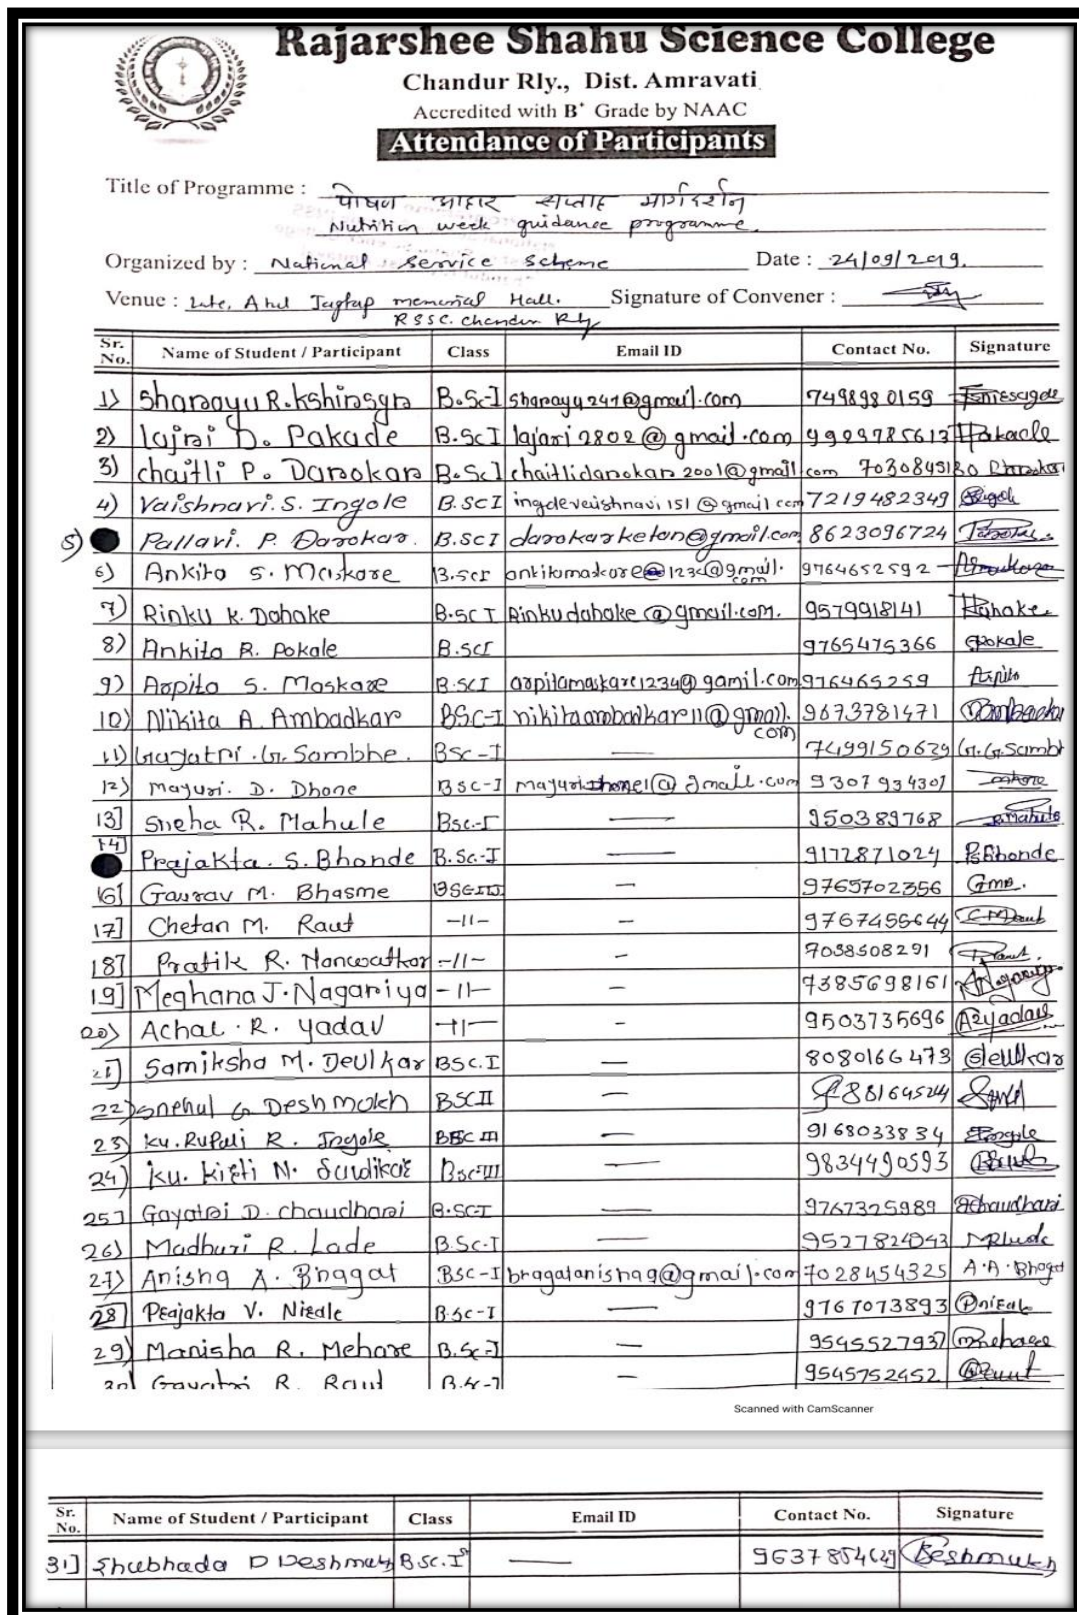 Rajarshee Shahu Science College
Chandur Rly., Dist. Amravati
Accredited with B+ Grade by NAAC
Attendance of Participants
Title of Programme : पोषण आहार सप्ताह मार्गदर्शन
Nutrition week guidance programme.
Organized by : National Service Scheme Date : 24/09/2019.
Venue : Late. Jagtap memorial Hall. Signature of Convener :
RSSC. Chandur Rly
Sr. No. Name of Student / Participant Class Email ID Contact No. Signature
1) B.Sc-I sharayu241@gmail.com 7498980159
2) D. Pakade B.Sc I lajari2802@gmail.com 9923785613 Pakade
3) chaitli P. Darokar B.Sc I chaitlidarokar2001@gmail.com 7030845130
4) Vaishnavi. S. Ingole B.Sc I 7219482349
5) Pallavi. P. Darokar. B.Sc I darokarketan@gmail.com 8623096724
6) Ankita S. Maskare B.Sc I 9764652592
7) Rinku K. Dahake B.Sc I Rinkudahake@gmail.com. 9579918141 Dahake
8) Ankita R. Pokale B.Sc I 9765475366 Pokale
9) Arpita S. Maskare B.Sc I arpitamaskare1234@gamil.com 976465259 Arpita
10) Nikita A. Ambadkar BSc-I nikitaambadkar11@gmail.com 9673781471
11) Gayatri. G. Sambhe. BSc-I — 7499150639 G.G.Sambh
12) Mayuri. D. Dhone BSc-I @gmail.com 9307934307
13] Sneha R. Mahule Bsc-I — 950389768 Mahule
14] Prajakta. S. Bhonde B.Sc-I — 9172871024 PSBhonde
16] Gaurav M. Bhasme BSc-III — 9765702356 GMB.
17] Chetan M. Raut -11- — 9767455644
18] Pratik R. Nanwatkar -11- — 7058508291
19] Meghana J. Nagariya -11- — 7385698161
20) Achal. R. Yadav -11- — 9503735696 ARYadav
21] Samiksha M. Deulkar BSc.I — 8080166473 Deulkar
22) Snehal G. Deshmukh BSC II — 88164524
23) Ku. Rupali R. Ingole BSC III — 9168033834 Ingole
24) Ku. Kirti N. BSC-III — 9834490593
25] Gayatri D. Chaudhari B.SC-I — 9767325989 Chaudhari
26) Madhuri R. Lade B.Sc-I — 9527824043
27) Anisha A. Bhagat BSc-I bhagatanisha9@gmail.com 7028454325 A.A.Bhagat
28] Prajakta V. Nirale B.Sc-I — 9767073893
29) Manisha R. Mehare B.Sc-I — 9545527937
30] Gayatri R. Raut B.Sc-I — 9545752452
Scanned with CamScanner
Sr. No. Name of Student / Participant Class Email ID Contact No. Signature
31] Shubhada D Deshmukh B.Sc.I — 9637854629 Deshmukh